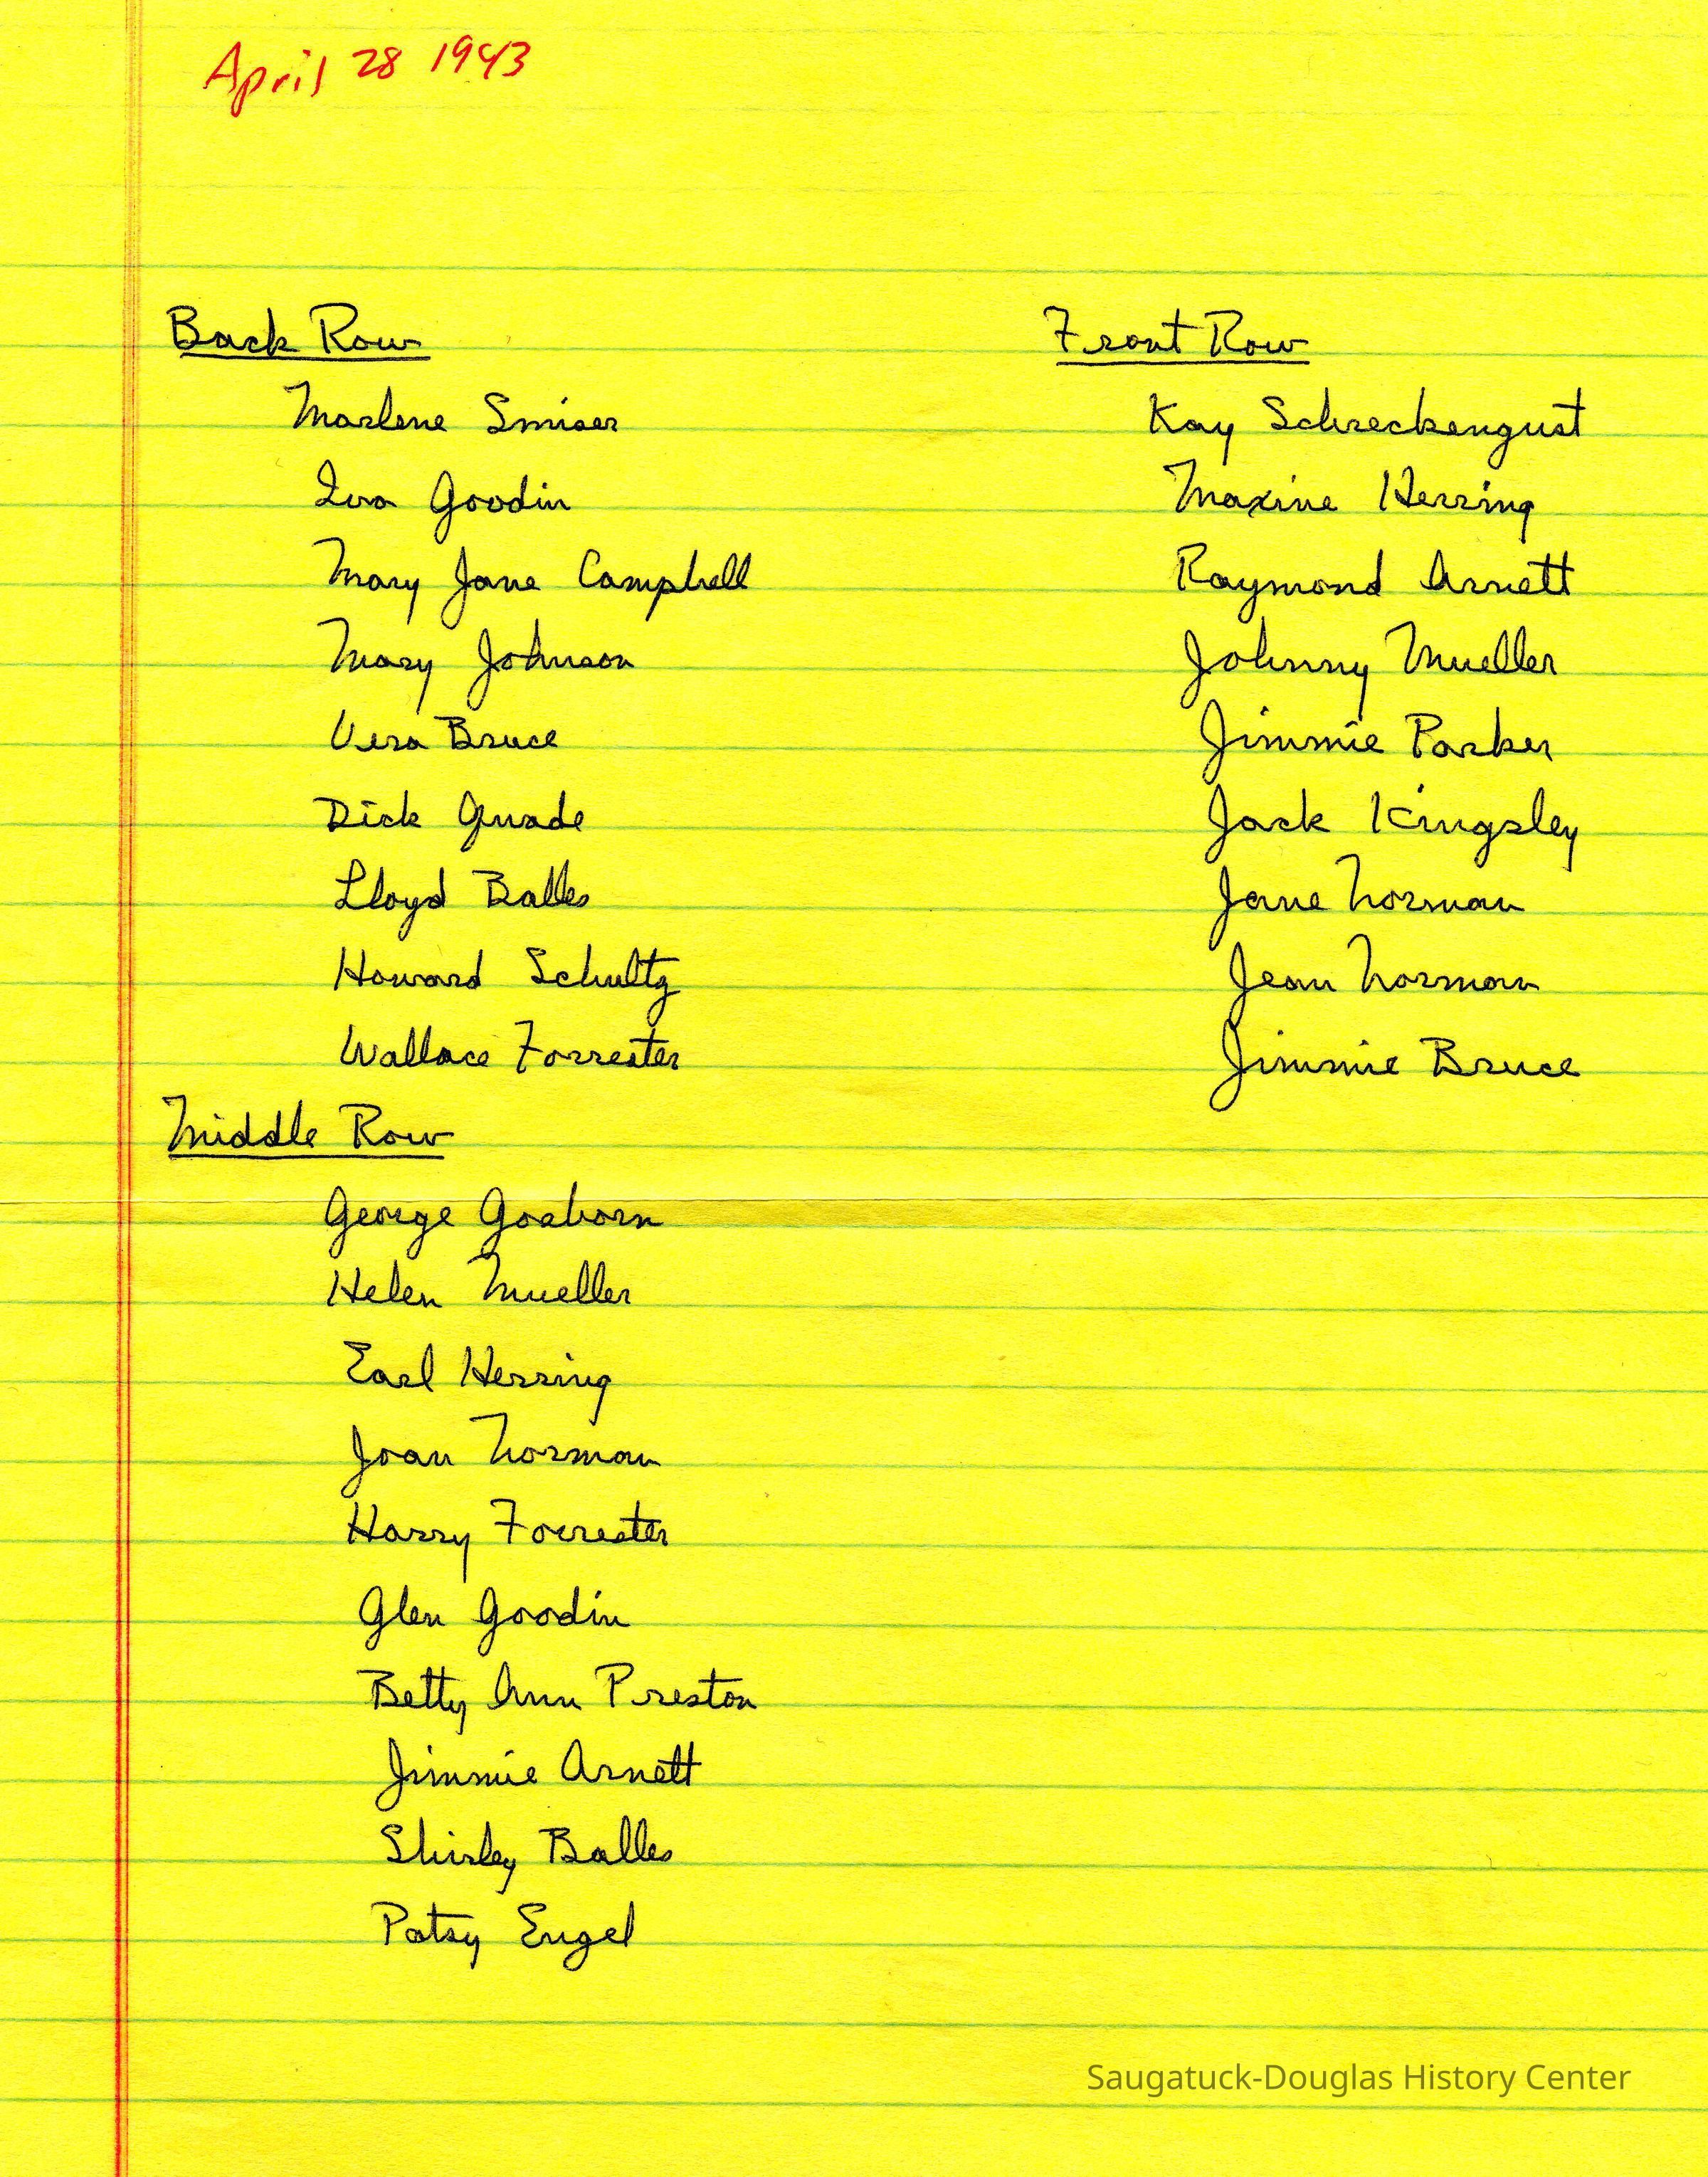 April 28 1943
Back Row
Marlene Smiser
Iva Goodin
Mary Jane Campbell
Mary Johnson
Vera Bruce
Dick Quade
Lloyd Balles
Howard Schultz
Wallace Forrester
Middle Row
George Gosborn
Helen Mueller
Earl Herring
Joan Norman
Harry Forrester
Glen Goodin
Betty Ann Preston
Jimmie Arnett
Shirley Balles
Patsy Engel
Front Row
Kay Schreckengust
Maxine Herring
Raymond Arnett
Johnny Mueller
Jimmie Parker
Jack Kingsley
Jane Norman
Jean Norman
Jimmie Bruce
Saugatuck-Douglas History Center